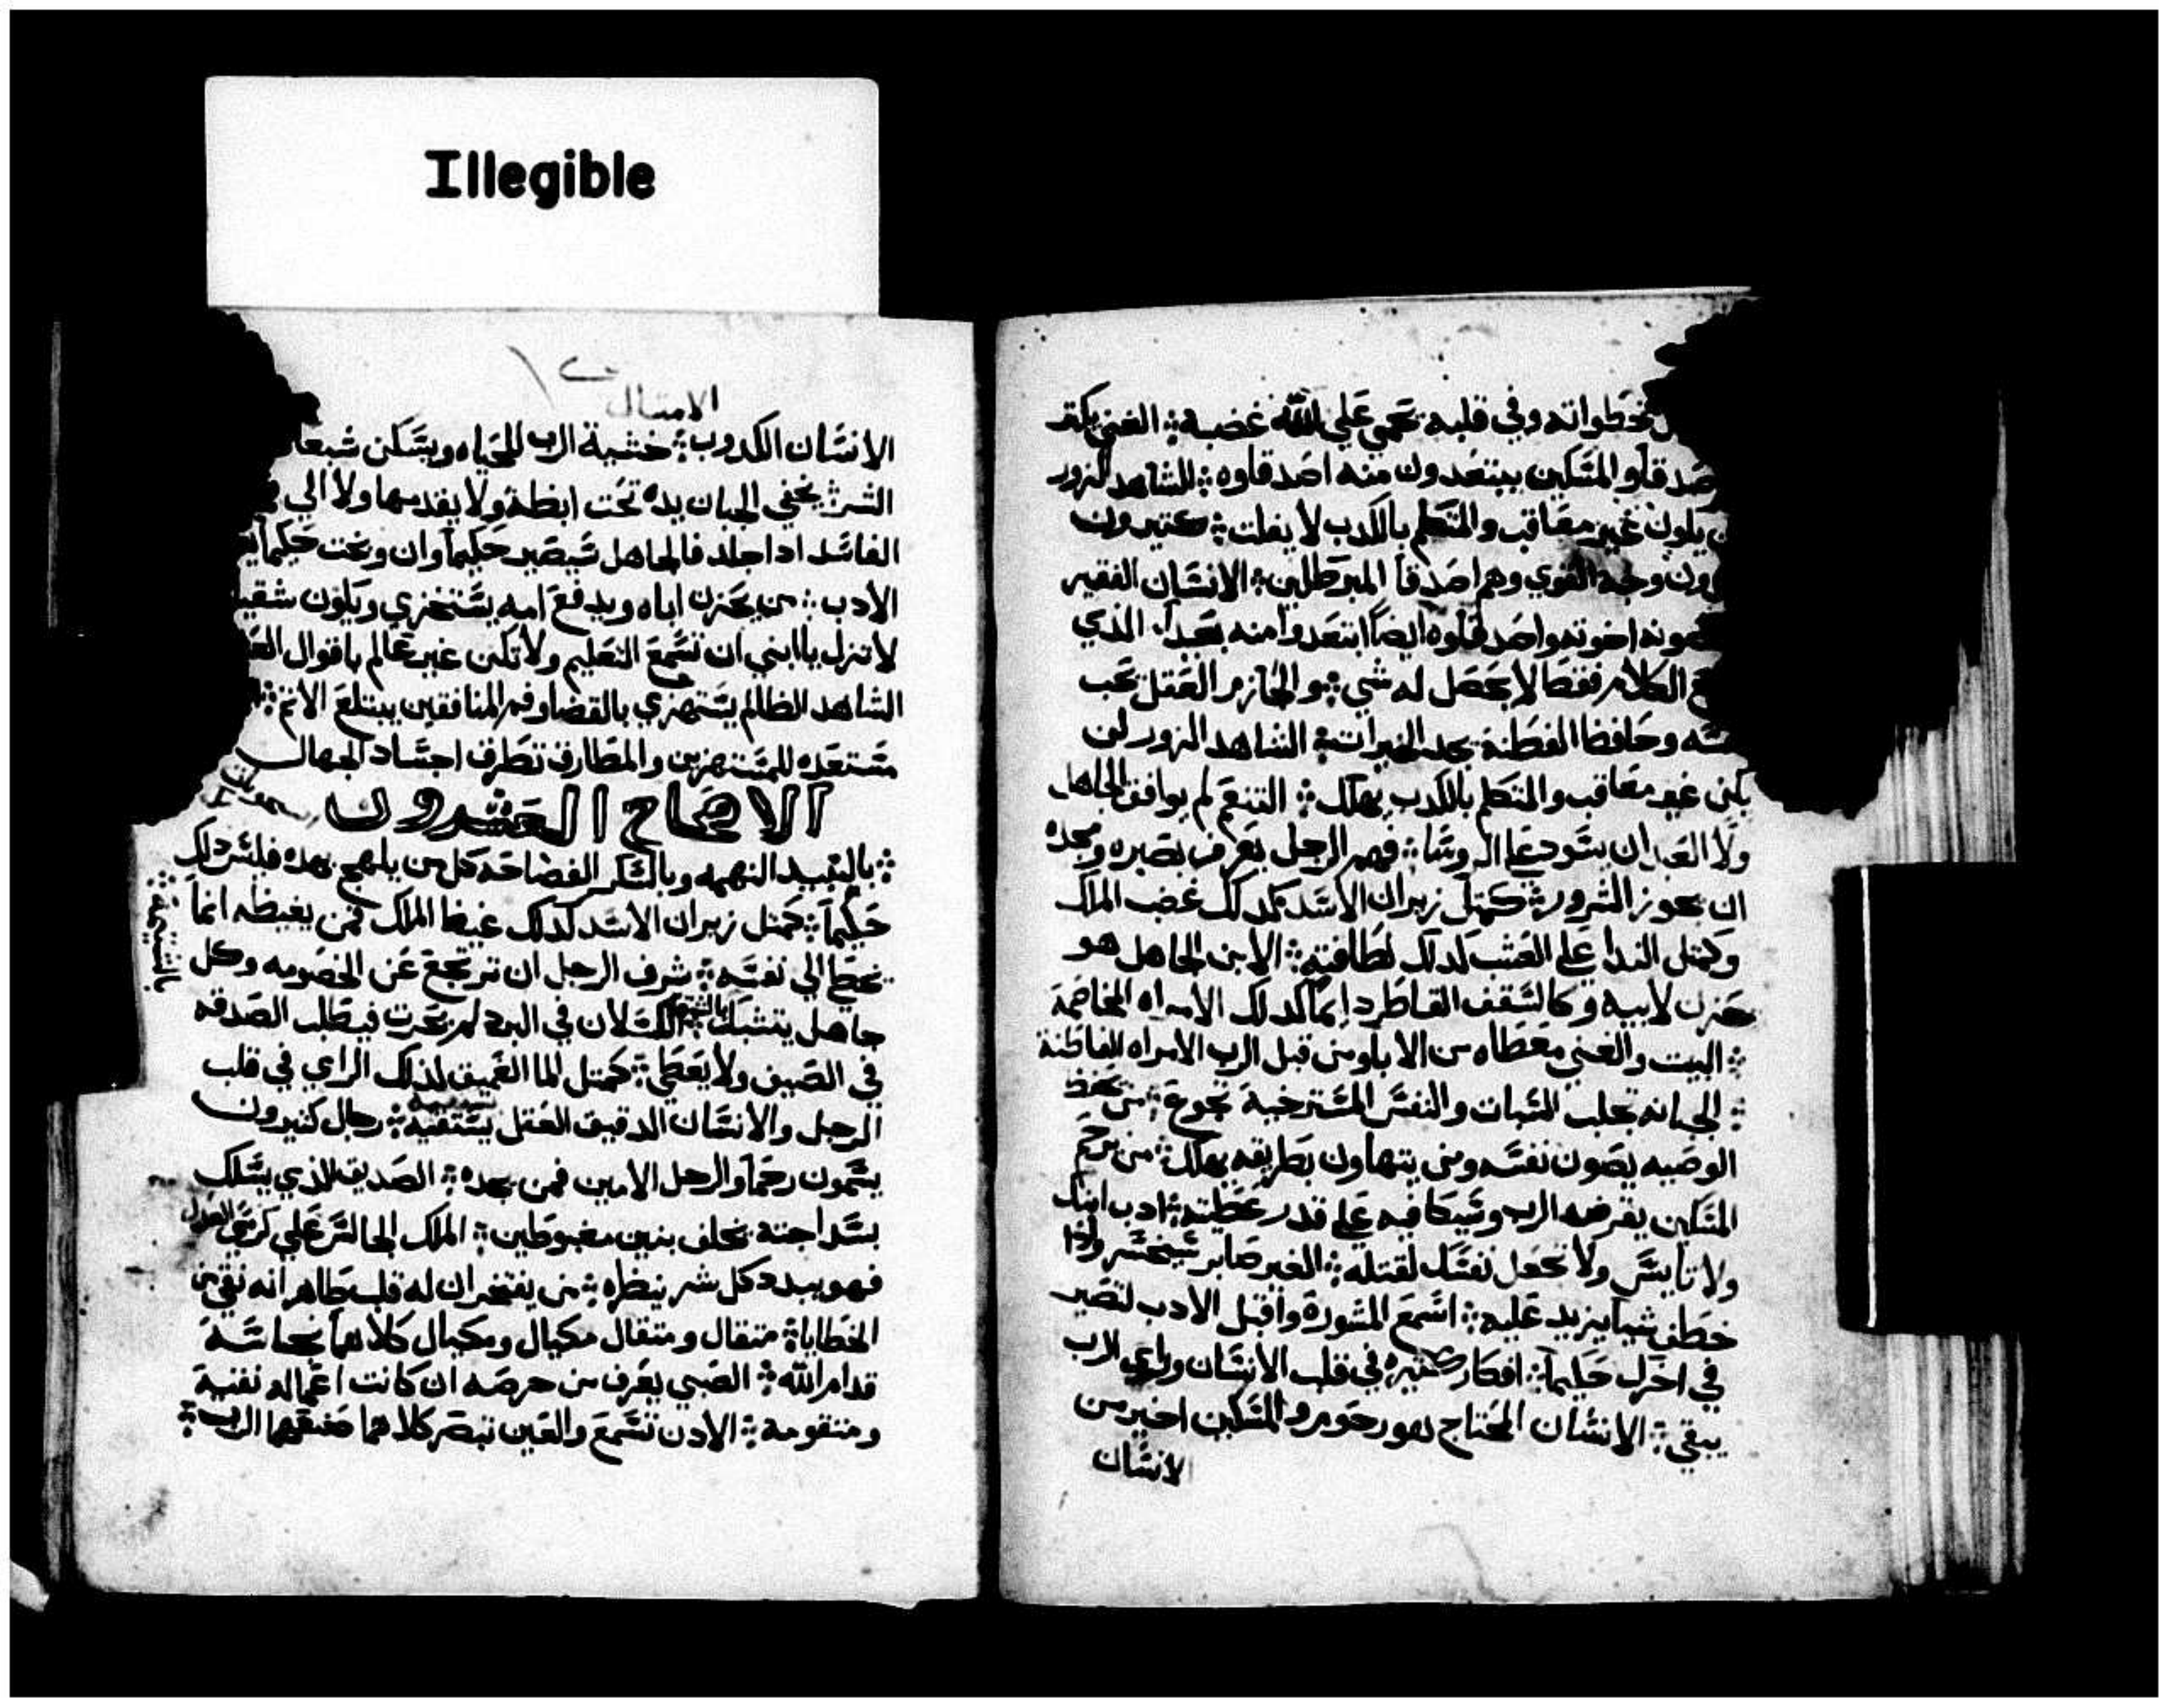 Illegible
خطواته وفي قلبه يحمي علي الله غضبه ؞ الغني يكتر
صدقاو المسَكين يبتعدون منه اصدقاوه ؞ الشاهد الزور
يكون غير معاقب والمتكلم بالكدب لا يفلت ؞ كتيرون
وجه القوي وهم اصدقا المبرطلين ؞ الانسَان الفقير
اخوته واصدقاوه ايضاً ابتعدوا منه بعيداً. الذي
الكلام فقط لا يحصل له شي ؞ والحازم العقل يحب
وحافظ الفطنة يجد الخيرات ؞ الشاهد الزور لن
يكن غير معاقب والمتكلم بالكدب يهلك ؞ التنعم لم يوافق الجاهل
ولا العبد ان يتسَود علي الروسَا ؞ فهم الرجل يعرف بصبره ومجده
ان يجوز الشرور ؞ كمتل زيران الاسَد كدلك غضب الملك
وكمتل الندا علي العشب كدلك لطافته ؞ الابن الجاهل هو
حزن لابيه وكالسَقف القاطر دايماً كدلك الامراه المخاصمة
؞ البيت والغني معطاه من الابا ومن قبل الرب الامراه الفاطنة
؞ الجبانه تجلب السَبات والنفس المسَترخية تجوع ؞ من يحفظ
الوصيه يصون نفسَه ومن يتهاون بطريقه يهلك ؞ من يرحم
المسَكين يقرضه الرب وسَيكافيه علي قدر عطيته ؞ ادب ابنك
ولا تايسَ ولا تجعل نفسَك لقتله ؞ الغير صابر سَيخسَر واذا
خطف شيا يزيد عليه ؞ اسَمع المشورة واقبل الادب لتصير
في اخرك حكيماً ؞ افكار كتيره في قلب الانسَان وراي الرب
يبقي ؞ الانسَان المحتاج هو رحوم والمسَكين اخير من
الانسَان
الامتال
الانسَان الكدوب ؞ خشية الرب للحياه ويسَكن شبعا
الشر ؞ يخفي الجبان يده تحت ابطه ولا يقدمها ولا الي
الفاسَد ادا جلد فالجاهل سَيصير حكيماً وان وبخت حكيماً
الادب ؞ من يحزن اباه ويدفع امه يسَتخزي ويكون شقيا
لا تزل يا ابني ان تسَمع التعليم ولا تكن غير عالم باقوال
الشاهد الظالم يسَتهزي بالقضا وفم المنافقين يبتلع الاتم ؞
مسَتعده للمسَتهزين والمطارق تطرق اجسَاد الجهال
الاصحاح العشرون
؞ بالنبيد النهمه وبالسَكر الفضاحه كل من يلهج بهده فليسَ دلك
حكيماً ؞ كمتل زيران الاسَد كدلك غيظ الملك فمن يغيظه انما
يخطي الي نفسَه ؞ شرف الرجل ان يرتجع عن الخصومه وكل
جاهل يتشبك بالشتيمه ؞ الكسَلان في البرد لم يحرت فيطلب الصدقه
في الصيف ولا يعطي ؞ كمتل الما العميق لذلك الراي في قلب
الرجل والانسَان الدقيق العقل يسَتقيه ؞ رجال كتيرون
يسَمون رحماً والرجل الامين فمن يجده ؞ الصديق الذي يسَلك
بسَداجته يخلف بنين مغبوطين ؞ الملك الجالسَ علي كرسَي العدل
فهو يبدد كل شر بنظره ؞ من يفتخر ان له قلب طاهر انه نقي من
الخطايا ؞ متقال ومتقال مكيال ومكيال كلاهما نجاسَة
قدام الله ؞ الصبي يعرف من حرصه ان كانت اعماله نقية
ومتقومه ؞ الادن تسَمع والعين تبصر كلاهما صنعهما الرب ؞